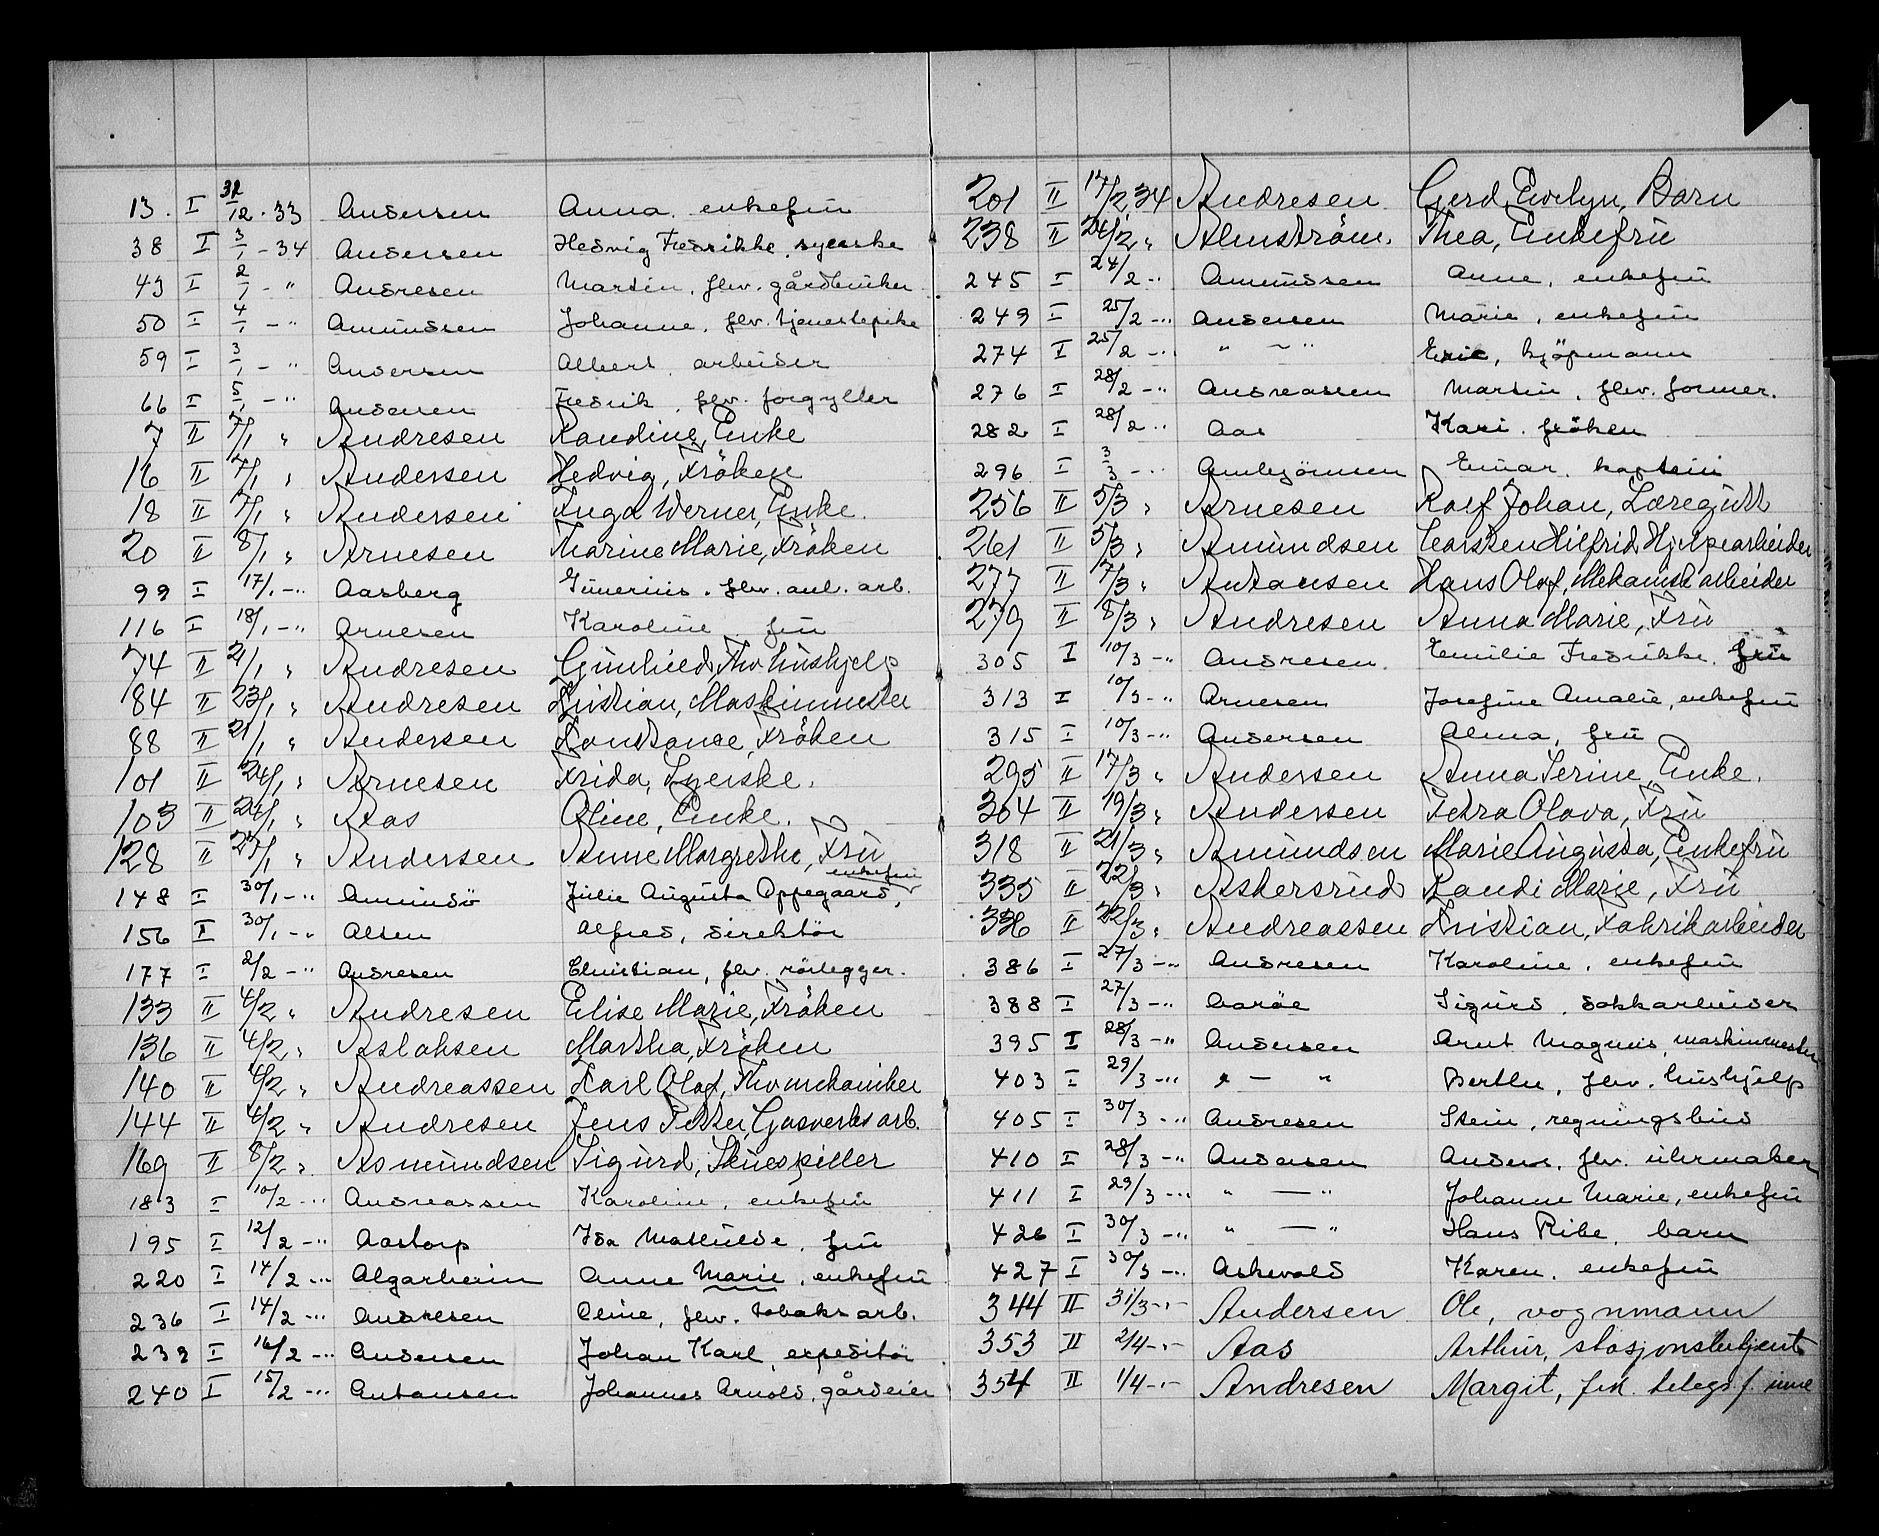 13. I 31/12-33 Andersen Anna, enkefru
38 I 3/1-34 Andersen Hedvig Fredrikke, syerske
43 I 2/1 - " Andresen Martin, fhv. gårdbruker
50 I 4/1 - " Amundsen Johanne, fhv. tjenestepike
59 I 3/1 - " Andersen Albert, arbeider
66 I 5/1 - " Andersen Fredrik, fhv. forgyller
7 II 7/1 " Andresen Randine, Enke
16 II 7/1 " Andersen Hedvig, Fröken
18 II 7/1 " Andersen Inga Werner, Enke.
20 II 8/1 " Arnesen Marine Marie, Fröken
99 I 17/1 - " Aasberg Gunerius, fhv. anl. arb.
116 I 18/1 - " Arnesen Karoline fru
74 II 21/1 " Andresen Gunhild, Fhv hushjelp
84 II 23/1 " Andresen Kristian, Maskinmester
88 II 21/1 " Andersen Konstanse, Fröken
101 II 24/1 " Arnesen Frida, Syerske.
103 II 24/1 " Aas Oline, Enke.
128 II 27/1 " Andersen Anne Margrethe, Fru
148 I 30/1 - " Amundö Julie Augusta Oppegaard, enkefru
156 I 30/1 - " Alsen Alfred, direktör
177 I 2/2 - " Andresen Christian, fhv. rörlegger.
133 II 4/2 " Andresen Elise Marie, Fröken
136 II 4/2 " Aslaksen Martha, Fröken
140 II 4/2 " Andreassen Karl Olaf, Fhv mekaniker
144 II 4/2 " Andresen Jens Petter, Gasverks arb.
169 II 8/2 " Asmundsen Sigurd, Skuespiller
183 I 10/2 - " Andreassen Karoline, enkefru
195 I 12/2 - " Aastorp Ida Mathilde, fru
220 I 14/2 - " Algarheim Anne Marie, enkefru
236 I 14/2 - " Andresen Oline, fhv. tobaksarb.
239 I 16/2 - " Andersen Johan Karl, expeditör
240 I 15/2 - " Antonsen Johannes Arnold, gårdeier
201 II 17/2 34 Andresen Gerd Evelyn, Barn
238 II 24/2 " Almström. Thea, Enkefru
245 I 24/2 - " Amundsen Anne, enkefru
249 I 25/2 - " Andersen Marie, enkefru
274 I 25/2 - " " - " Eric, kjöpmann
276 I 28/2 - " Andreassen Martin, fhv. former.
282 I 28/2 - " Aas Kari, fröken
296 I 3/3 - " Arnbjörnsen Einar, kaptein
256 II 5/3 " Arnesen Rolf Johan, Læregutt
261 II 5/3 " Amundsen Carsten Hilfrid, Hjelpearbeider
277 II 7/3 " Antonsen Hans Olaf, Mekanisk arbeider
279 II 8/3 " Andresen Anna Marie, Fru
305 I 10/3 - " Andresen. Emilie Fredrikke, fru
313 I 10/3 - " Arnesen Josefine Amalie, enkefru
315 I 10/3 - " Andersen Alma, fru
295 II 17/3 " Andersen Anna Serine, Enke.
304 II 19/3 " Andersen Petra Olava, Fru
318 II 21/3 " Amundsen Marie Augusta, Enkefru
335 II 22/3 " Askersrud Randi Marie, Fru
336 II 22/3 " Andreassen Kristian, Fabrikarbeider
386 I 27/3 - " Andresen Karoline, enkefru
388 I 27/3 - " Sigurd, dokkarbeider
395 I 28/3 - " Andersen Arnt Magnus, maskinmester
403 I 29/3 - " " - " Berthe, fhv. hushjelp
405 I 30/3 - " Andresen Stein, regningsbud
410 I 28/3 - " Andersen Anders, fhv. uhrmaker
411 I 29/3 - " " - " Johanne Marie, enkefru
426 I 30/3 - " " - " Hans Ribe, barn
427 I 30/3 - " Askevold Karen, enkefru
344 II 31/3 - " - Andersen Ole, vognmann
353 II 2/4 - " - Aas Arthur, stasjonsbetjent
354 II 1/4 - " - Andresen Margit, frk. telegrf. inne